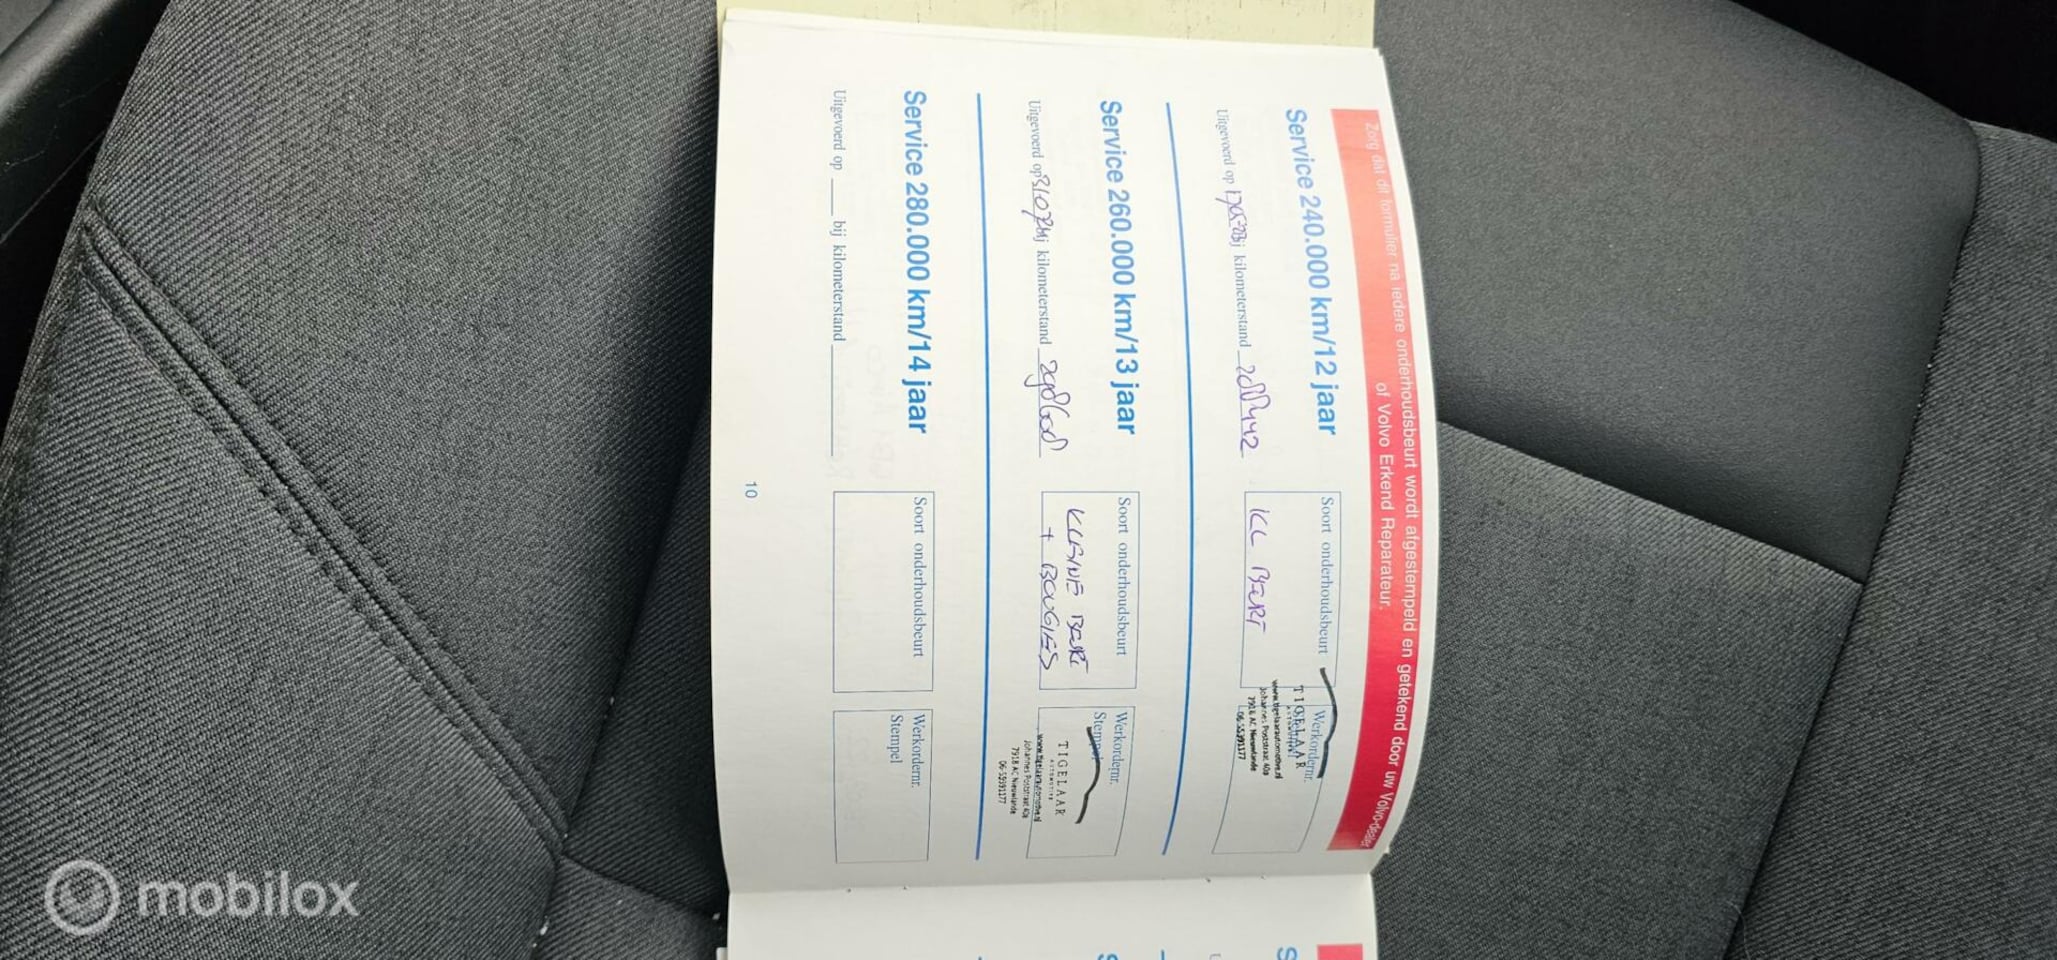 Zorg dat dit formulier na iedere onderhoudsbeurt wordt afgestempeld en getekend door uw Volvo-dealer
of Volvo Erkend Reparateur.
Service 240.000 km/12 jaar
Uitgevoerd op bij kilometerstand
Soort onderhoudsbeurt
KL BEURT
Werkordernr.
TIGELAAR
AUTOMOTIVE
www.tigelaarautomotive.nl
Johannes Poststraat 40a
7918 AC Nieuwlande
06-55391177
Service 260.000 km/13 jaar
Uitgevoerd op bij kilometerstand 298608
Soort onderhoudsbeurt
KLEINE BEURT
+ BOUGIES
Werkordernr.
Stempel
TIGELAAR
AUTOMOTIVE
www.tigelaarautomotive.nl
Johannes Poststraat 40a
7918 AC Nieuwlande
06-55391177
Service 280.000 km/14 jaar
Uitgevoerd op ___ bij kilometerstand
Soort onderhoudsbeurt
Werkordernr.
Stempel
10
mobilox